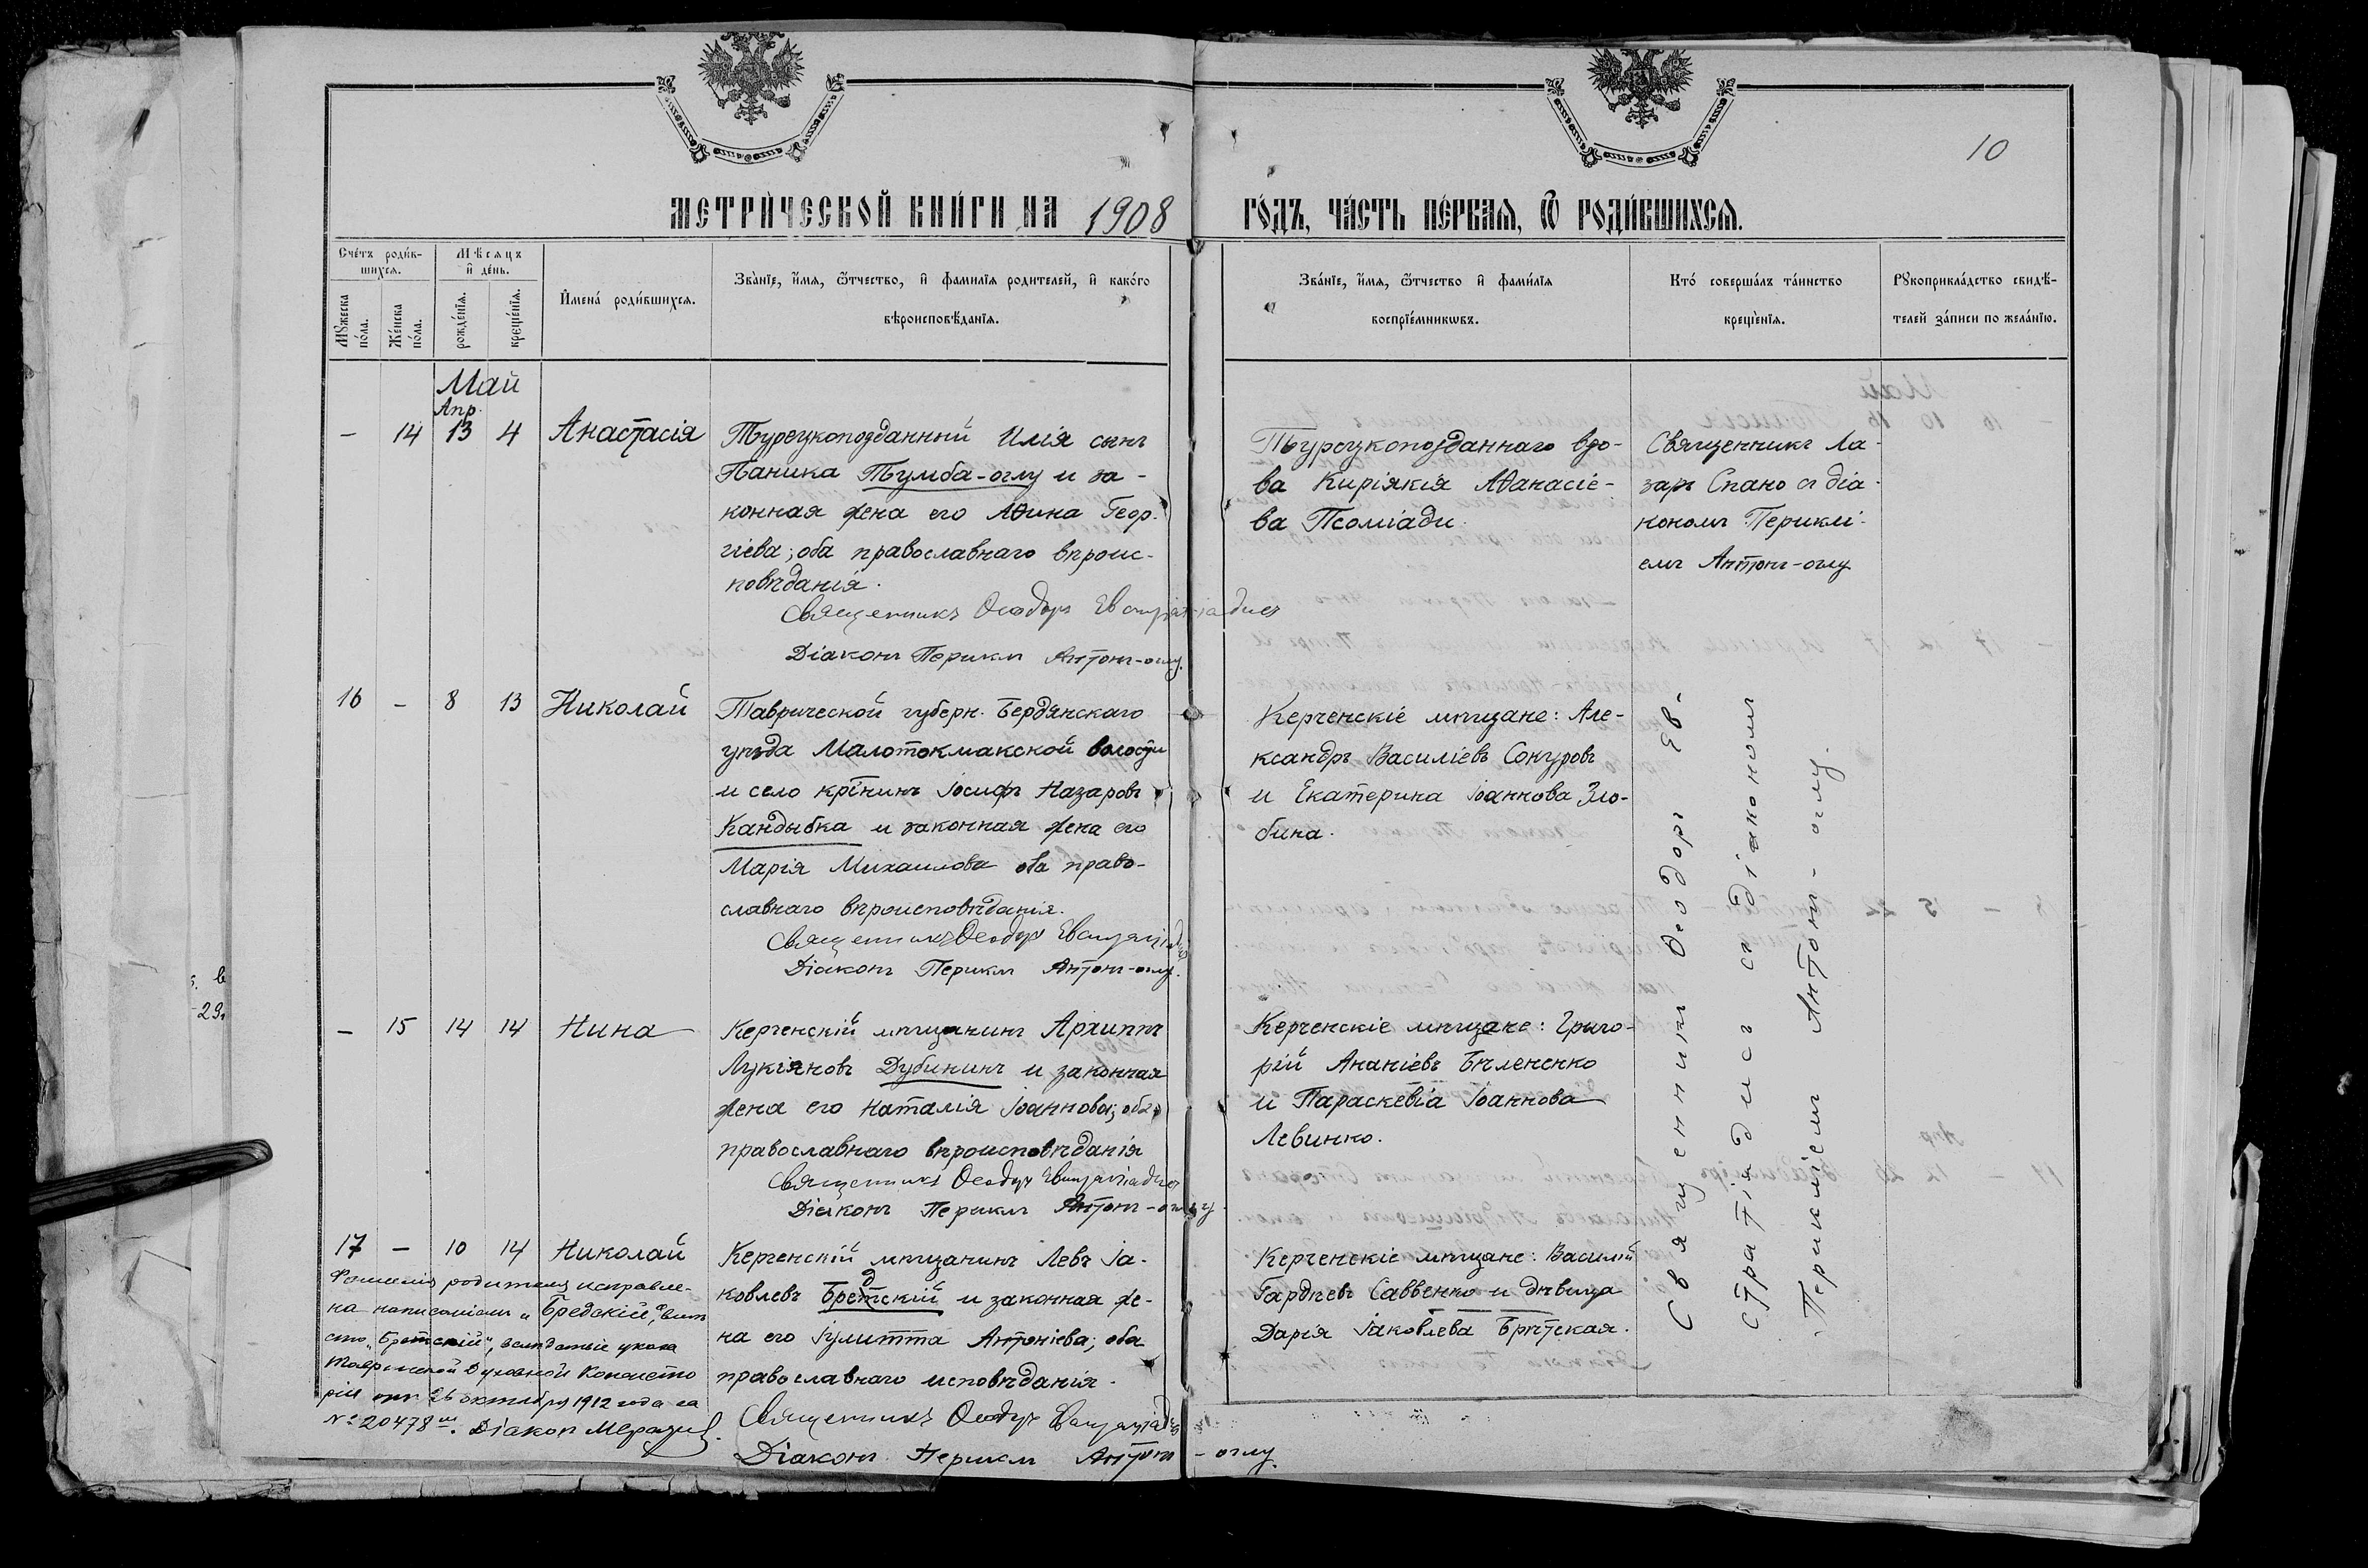 10
МЕТРИ́ЧЕСКОЙ КНИ́ГИ НА 1908 ГО́ДЪ, ЧА́СТЬ ПЕ́РВАЯ, Ѿ РОДИ́ВШИХСЯ.
Сче́тъ роди́в-
шихся.
Мꙋжеска по́ла.
Же́нска по́ла.
Мѣ́сяцъ
и҆ де́нь.
рожде́нїя.
креще́нїя.
И҆мена́ роди́вшихся.
Зва́нїе, и҆́мя, ѻ҆́тчество, и҆ фами́лїя роди́телей, и҆ како́го
вѣроисповѣ́данїя.
Зва́нїе, и҆́мя, ѻ҆́тчество и҆ фами́лїя
воспрїе́мникѡвъ.
Кто́ соверша́лъ та́инство
креще́нїя.
Рꙋкоприкла́дство свидѣ́-
телей за́писи по жела́нїю.
Май
Апр.
– 14 13 4 Анастасія
Турецкоподданный Илія сынъ
Паника Тумба-оглу и за-
конная жена его Аѳина Геор-
гіева; оба православнаго вѣроис-
повѣданія.
Священникъ Ѳеодоръ Евангеліадисъ
Діаконъ Периклъ Антонъ-оглу.
Турецкоподданнаго вдо-
ва Киріакія Аѳанасіе-
ва Псоміади.
Священникъ Ла-
зарь Спано съ діа-
кономъ Периклі-
емъ Антонъ-оглу
16 – 8 13 Николай
Таврической губерн. Бердянскаго
уѣзда Малотокмакской волости
и село кр̅нинъ Іосифъ Назаровъ
Кандыбка и законная жена его
Марія Михаилова оба право-
славнаго вѣроисповѣданія.
Священникъ Ѳеодоръ Евангеліадисъ
Діаконъ Периклъ Антонъ-оглу.
Керченскіе мѣщане: Але-
ксандръ Василіевъ Сокуровъ
и Екатерина Іоаннова Зло-
бина.
Священникъ Ѳеодоръ Ев-
стратіядисъ съ діакономъ
Перикліемъ Антонъ-оглу.
– 15 14 14 Нина
Керченскій мѣщанинъ Архиппъ
Лукіяновъ Дубининъ и законная
жена его Наталія Іоаннова; оба
православнаго вѣроисповѣданія
Священникъ Ѳеодоръ Евангеліадисъ
Діаконъ Периклъ Антонъ-оглу.
Керченскіе мѣщане: Григо-
рій Ананіевъ Бѣлененко
и Параскевіа Іоаннова
Левинко.
17 – 10 14 Николай
Керченскій мѣщанинъ Левъ Іа-
д
ковлевъ Бретскій и законная же-
на его Іулитта Антоніева; оба
православнаго исповѣданія.
Священникъ Ѳеодоръ Евангеліадисъ
Діаконъ Периклъ Антонъ-оглу.
Керченскіе мѣщане: Василій
Гордѣевъ Саввенко и дѣвица
Дарія Іаковлева Брѣтская.
Фамилія родителя исправле-
на написаніемъ „Бредскій", вмѣ
сто „Бретскій", вслѣдствіе указа
Таврической Духовной Консисто
ріи отъ 26 октября 1912 года за
№ 20478ᵐ. Діакон